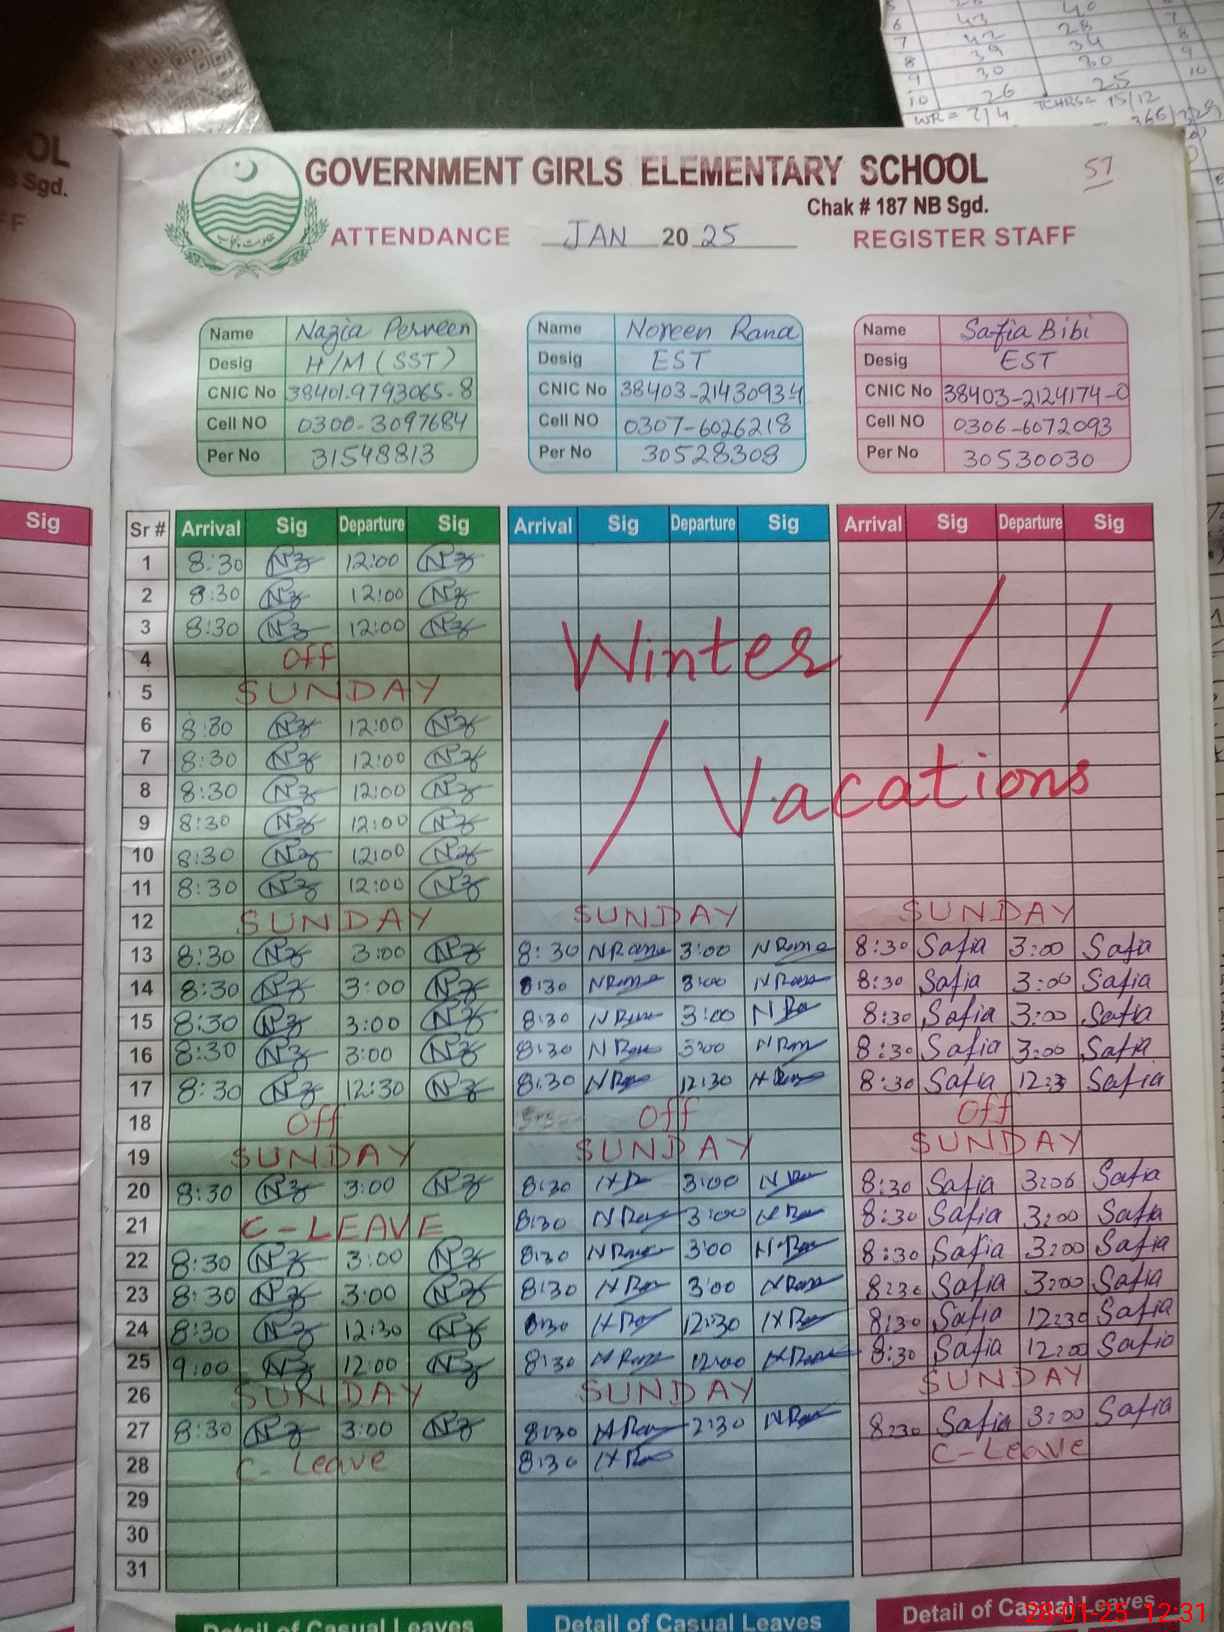 5 40
6 43 28 7
7 42 34 8
8 39 30 9
9 30 25 10
10 26
WR = 2/4 TCHRS = 15/12
GOVERNMENT GIRLS ELEMENTARY SCHOOL 57
Chak # 187 NB Sgd.
ATTENDANCE JAN 20 25 REGISTER STAFF
OL
Sgd.
Name Nazia Perveen Name Noreen Rana Name Safia Bibi
Desig H/M (SST) Desig EST Desig EST
CNIC No 38401-9793065-8 CNIC No 38403-2143093-4 CNIC No 38403-2124174-0
Cell NO 0300-3097684 Cell NO 0307-6026218 Cell NO 0306-6072093
Per No 31548813 Per No 30528308 Per No 30530030
Sig Sr # Arrival Sig Departure Sig Arrival Sig Departure Sig Arrival Sig Departure Sig
1 8:30 Nz 12:00 Nz
2 8:30 Nz 12:00 Nz
3 8:30 Nz 12:00 Nz
4 Off Winter
5 SUNDAY
6 8:30 Nz 12:00 Nz
7 8:30 Nz 12:00 Nz
8 8:30 Nz 12:00 Nz Vacations
9 8:30 Nz 12:00 Nz
10 8:30 Nz 12:00 Nz
11 8:30 Nz 12:00 Nz
12 SUNDAY SUNDAY SUNDAY
13 8:30 Nz 3:00 Nz 8:30 NRana 3:00 NRana 8:30 Safia 3:00 Safia
14 8:30 Nz 3:00 Nz 8:30 NRana 3:00 NRana 8:30 Safia 3:00 Safia
15 8:30 Nz 3:00 Nz 8:30 NRana 3:00 NRa 8:30 Safia 3:00 Safia
16 8:30 Nz 3:00 Nz 8:30 NRana 3:00 NRana 8:30 Safia 3:00 Safia
17 8:30 Nz 12:30 Nz 8:30 NRana 12:30 NRana 8:30 Safia 12:3 Safia
18 Off Off Off
19 SUNDAY SUNDAY SUNDAY
20 8:30 Nz 3:00 Nz 8:30 NRa 3:00 NRa 8:30 Safia 3:00 Safia
21 C-LEAVE 8:30 NRana 3:00 NRa 8:30 Safia 3:00 Safia
22 8:30 Nz 3:00 Nz 8:30 NRana 3:00 NRana 8:30 Safia 3:00 Safia
23 8:30 Nz 3:00 Nz 8:30 NRa 3:00 NRana 8:30 Safia 3:00 Safia
24 8:30 Nz 12:30 Nz 8:30 NRa 12:30 NRa 8:30 Safia 12:30 Safia
25 9:00 Nz 12:00 Nz 8:30 NRana 12:00 NRana 8:30 Safia 12:00 Safia
26 SUNDAY SUNDAY SUNDAY
27 8:30 Nz 3:00 Nz 8:30 NRana 2:30 NRana 8:30 Safia 3:00 Safia
28 C-Leave 8:30 NRa C-Leave
29
30
31
Detail of Casual Leaves Detail of Casual Leaves Detail of Casual Leaves
28-01-25 12:31